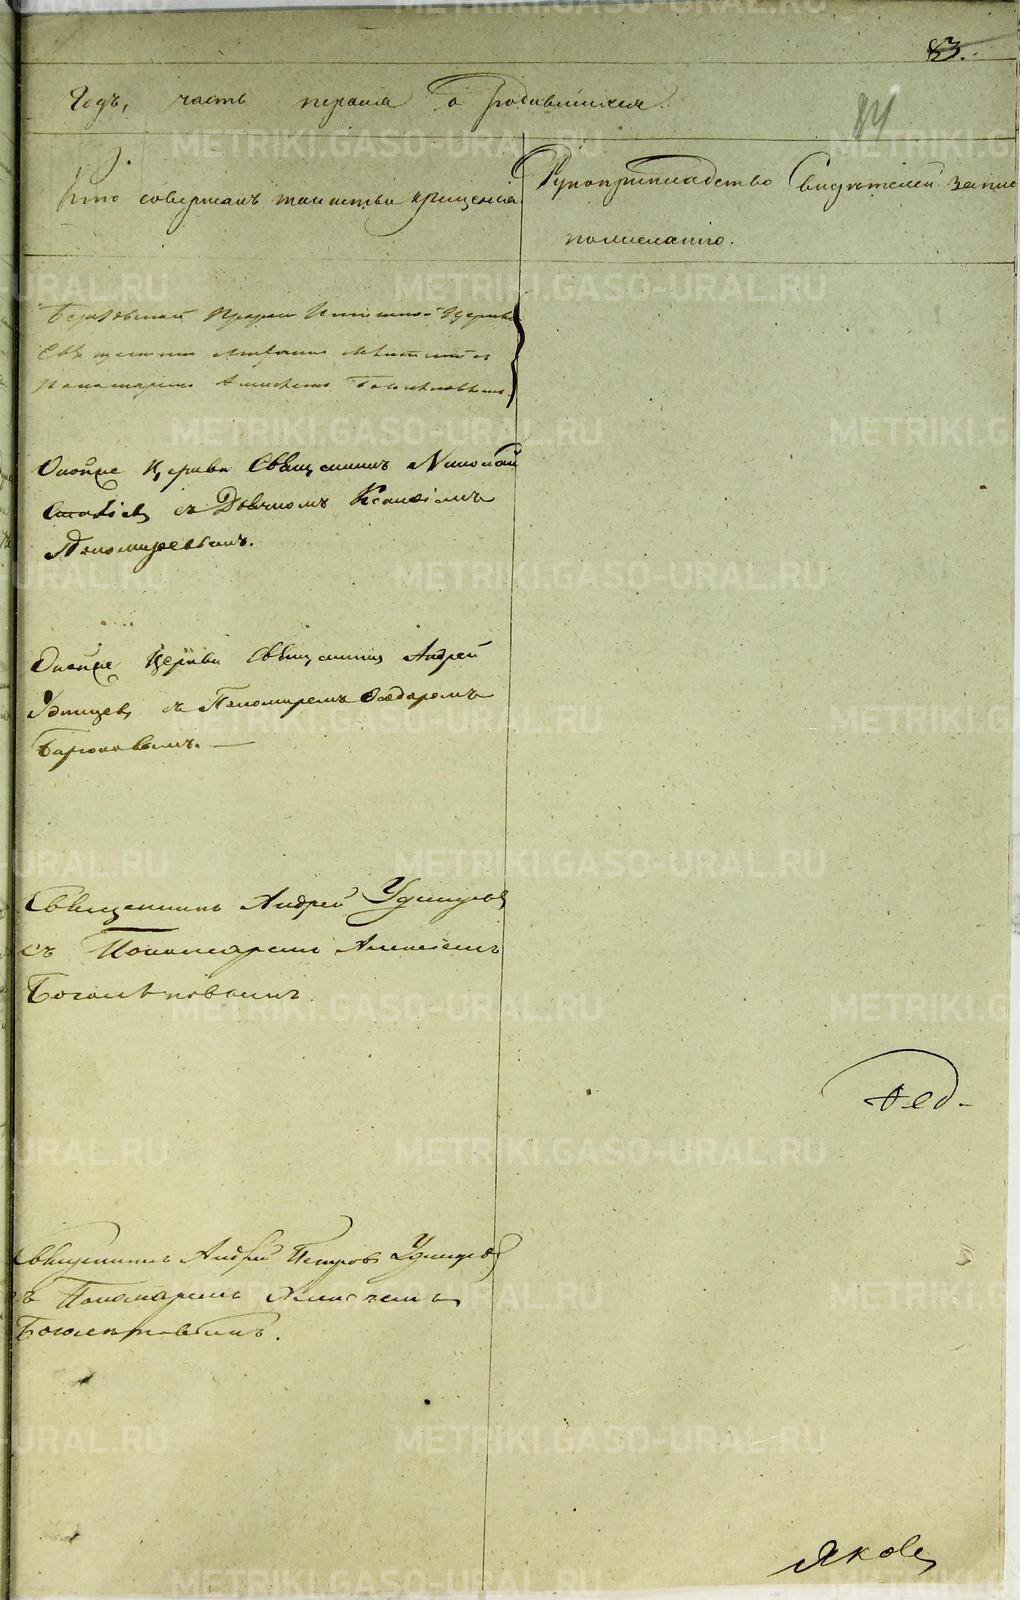 83.
84
Годъ, часть первая о родившихся.
Кто совершалъ таинство крещенія
Рукоприкладство Свидѣтелей записи
по желанію.
Пророко Ильинской Церкви
Священникъ
Пономаремъ Алексѣемъ Боголѣповымъ
Оной же Церкви Священникъ Николай
съ Дьячкомъ
Пономаревымъ.
Оной же Церкви Священникъ Андрей
Удинцевъ съ Пономаремъ Федоромъ
Священникъ Андрей Удинцовъ
съ Пономаремъ Алексѣемъ
Боголѣповымъ
Священникъ Андрей Петровъ Удинцовъ
съ Пономаремъ Алексѣемъ
Боголеповымъ.
Фед-
Яковъ
METRIKI.GASO-URAL.RU